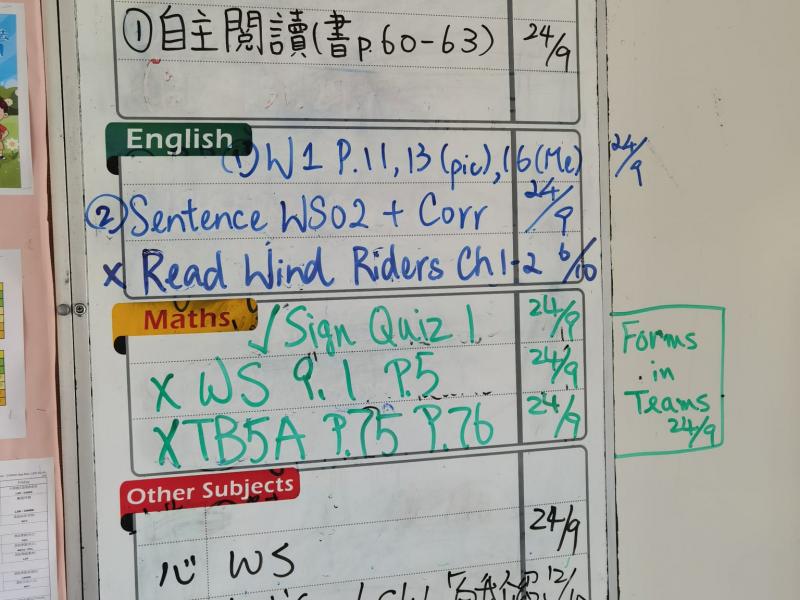 ①自主閱讀(書p.60-63) 24/9
English
(1) W1 P.11, 13 (pic), 16 (Me) 24/9
② Sentence WS02 + Corr 24/9
x Read Wind Riders Ch1-2 6/10
Maths
✓ Sign Quiz 1 24/9
x WS 9.1 P.5 24/9
x TB5A P.75 P.76 24/9
Forms
in
Teams
24/9
Other Subjects
心 WS 24/9
12/10